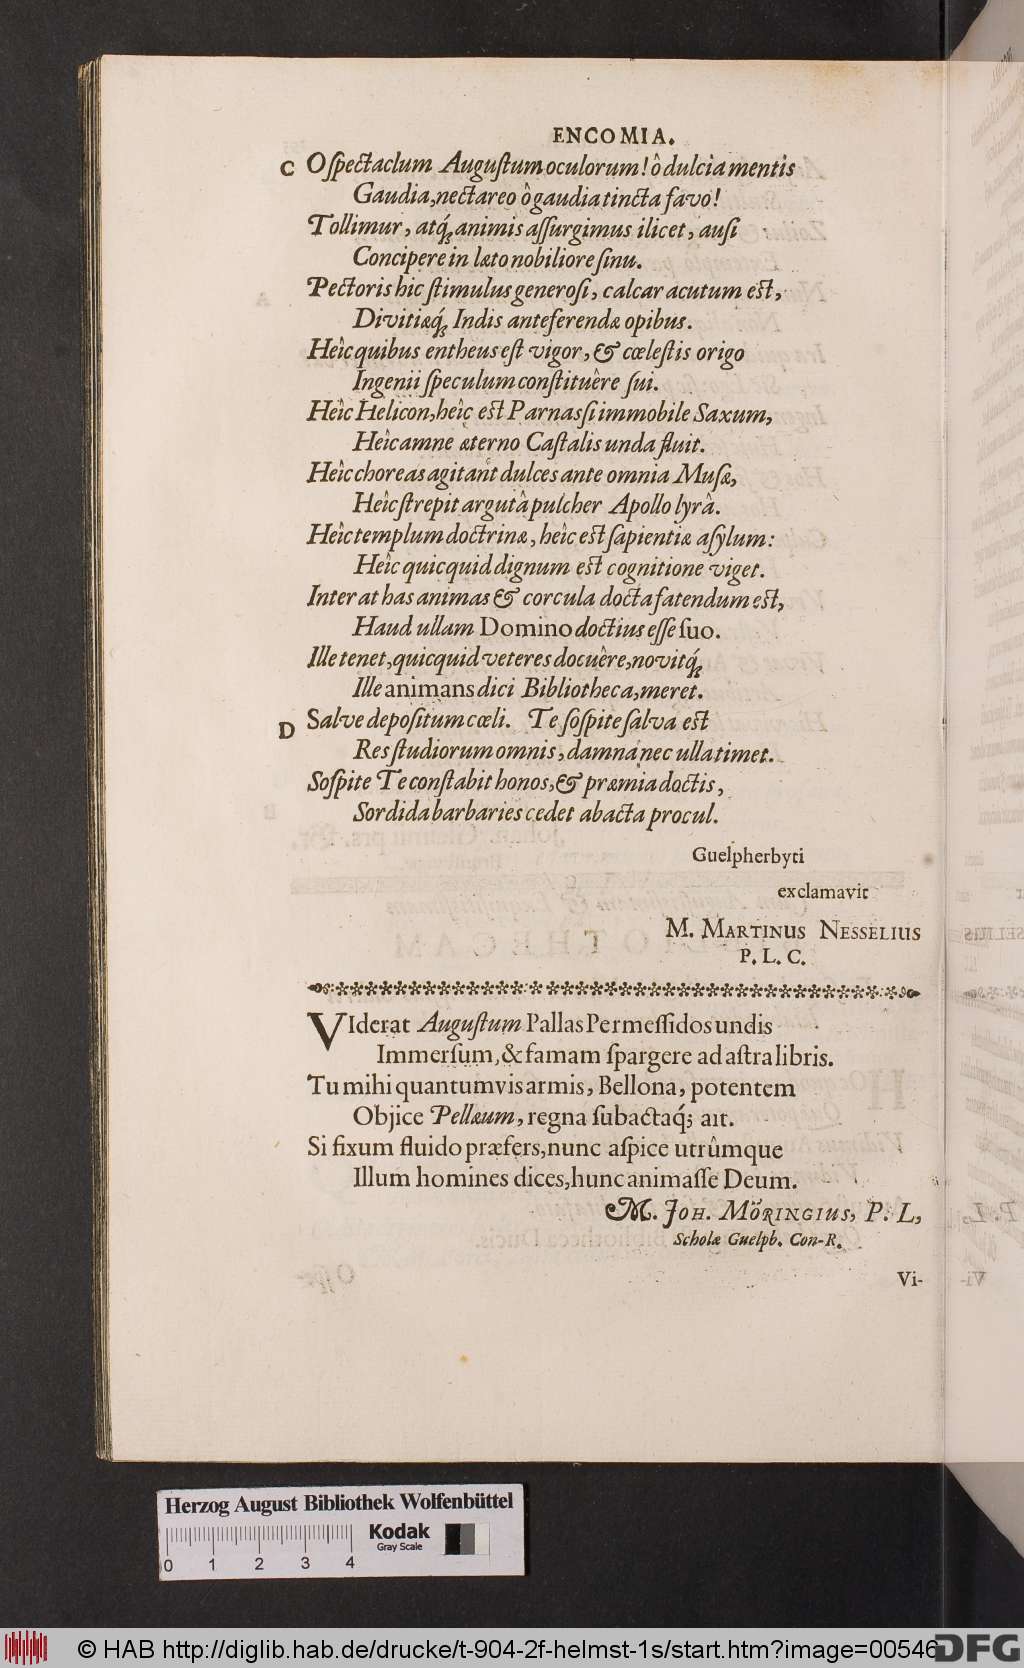 ENCOMIA.
C O ſpectaclum Auguſtum oculorum! ô dulcia mentis
Gaudia, nectareo ô gaudia tincta favo!
Tollimur, atq́; animis aſſurgimus ilicet, auſi
Concipere in læto nobiliore ſinu.
Pectoris hic ſtimulus generoſi, calcar acutum eſt,
Divitiæq́; Indis anteferendæ opibus.
Heîc quibus entheus eſt vigor, & cœleſtis origo
Ingenii ſpeculum conſtituêre ſui.
Heîc Helicon, heîc eſt Parnasſi immobile Saxum,
Heîc amne æterno Caſtalis unda fluit.
Heîc choreas agitant dulces ante omnia Muſæ,
Heîc ſtrepit argutâ pulcher Apollo lyrâ.
Heîc templum doctrinæ, heîc eſt ſapientiæ aſylum:
Heîc quicquid dignum eſt cognitione viget.
Inter at has animas & corcula docta fatendum eſt,
Haud ullam Domino doctius eſſe ſuo.
Ille tenet, quicquid veteres docuêre, novitq́;
Ille animans dici Bibliotheca, meret.
D Salve depoſitum cœli. Te ſoſpite ſalva eſt
Res ſtudiorum omnis, damna nec ulla timet.
Soſpite Te conſtabit honos, & præmia doctis,
Sordida barbaries cedet abacta procul.
Guelpherbyti
exclamavit
M. MARTINUS NESSELIUS
P. L. C.
VIderat Auguſtum Pallas Permeſſidos undis
Immerſum, & famam ſpargere ad aſtra libris.
Tu mihi quantumvis armis, Bellona, potentem
Objice Pellæum, regna ſubactaq́; ait.
Si fixum fluido præfers, nunc aſpice utrûmque
Illum homines dices, hunc animaſſe Deum.
M. JOH. MÖRINGIUS, P. L,
Scholæ Guelpb. Con-R.
Vi-
Herzog August Bibliothek Wolfenbüttel
0 1 2 3 4
Kodak
Gray Scale
© HAB http://diglib.hab.de/drucke/t-904-2f-helmst-1s/start.htm?image=00546
DFG